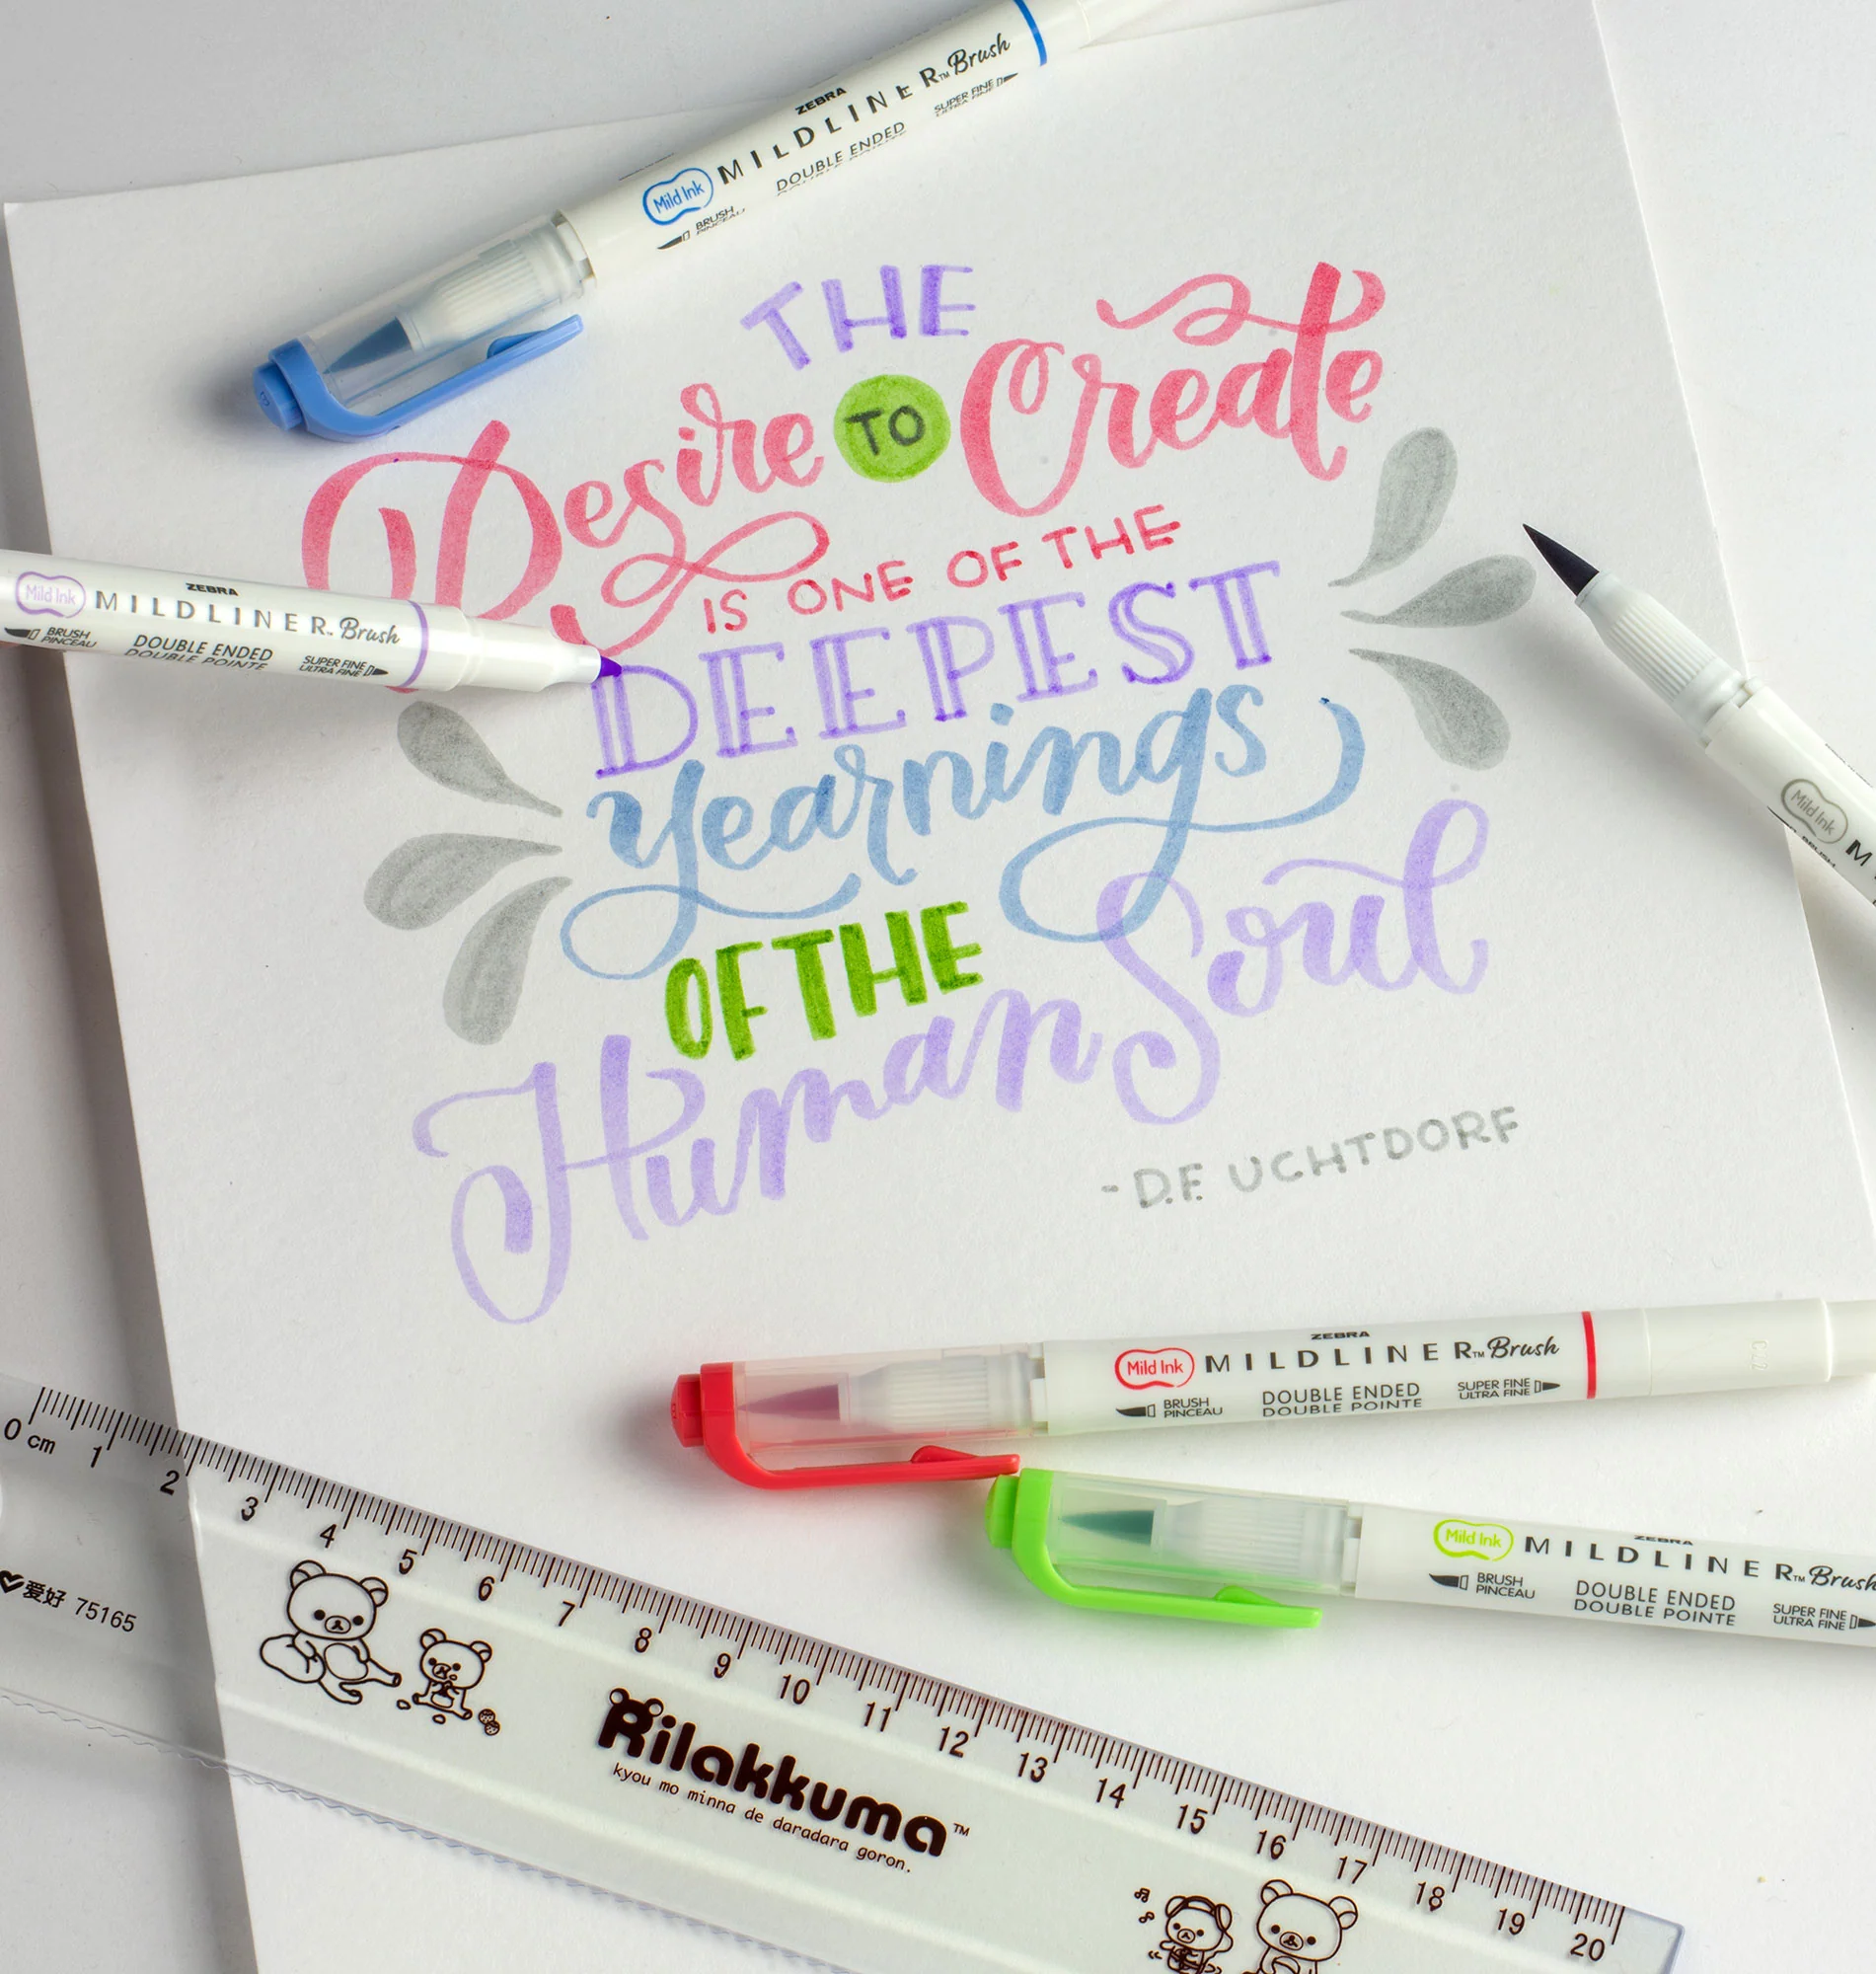 ZEBRA
MILDLINER™ Brush
Mild Ink
DOUBLE ENDED
SUPER FINE
ULTRA FINE
BRUSH
PINCEAU
THE
Desire TO Create
IS ONE OF THE
DEEPEST
Yearnings
OF THE
Human Soul
- D.F. UCHTDORF
ZEBRA
Mild Ink MILDLINER™ Brush
BRUSH
PINCEAU
DOUBLE ENDED
DOUBLE POINTE
SUPER FINE
ULTRA FINE
Mild Ink M
ZEBRA
Mild Ink MILDLINER™ Brush
BRUSH
PINCEAU
DOUBLE ENDED
DOUBLE POINTE
SUPER FINE
ULTRA FINE
ZEBRA
Mild Ink MILDLINER™ Brush
BRUSH
PINCEAU
DOUBLE ENDED
DOUBLE POINTE
SUPER FINE
ULTRA FINE
0 cm 1 2 3 4 5 6 7 8 9 10 11 12 13 14 15 16 17 18 19 20
爱好 75165
Rilakkuma™
kyou mo minna de daradara goron.